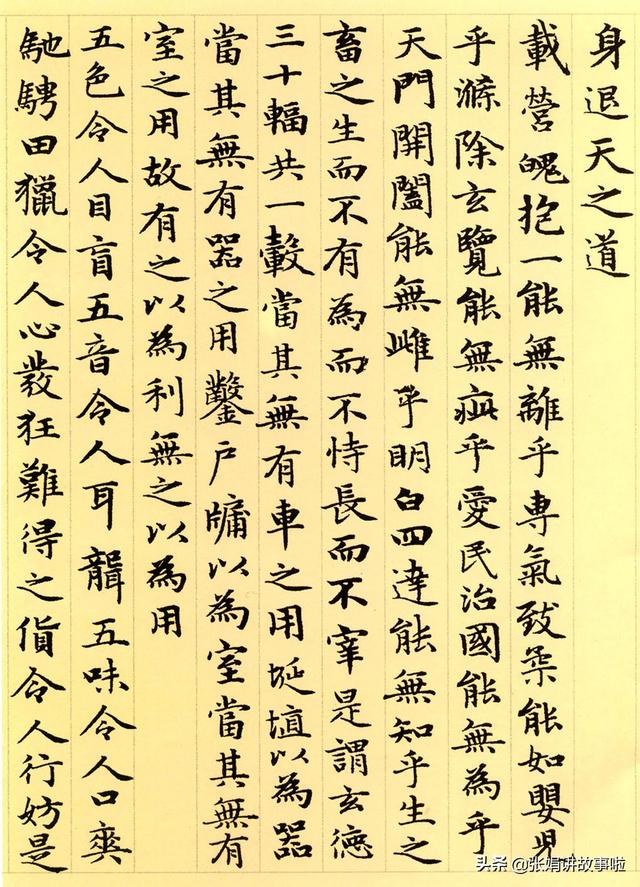 身退天之道
載營魄抱一能無離乎專氣致柔能如嬰兒
乎滌除玄覽能無疵乎愛民治國能無為乎
天門開闔能無雌乎明白四達能無知乎生之
畜之生而不有為而不恃長而不宰是謂玄德
三十輻共一轂當其無有車之用埏埴以為器
當其無有器之用鑿戶牖以為室當其無有
室之用故有之以為利無之以為用
五色令人目盲五音令人耳聾五味令人口爽
馳騁田獵令人心發狂難得之貨令人行妨是
头条 @张娟讲故事啦